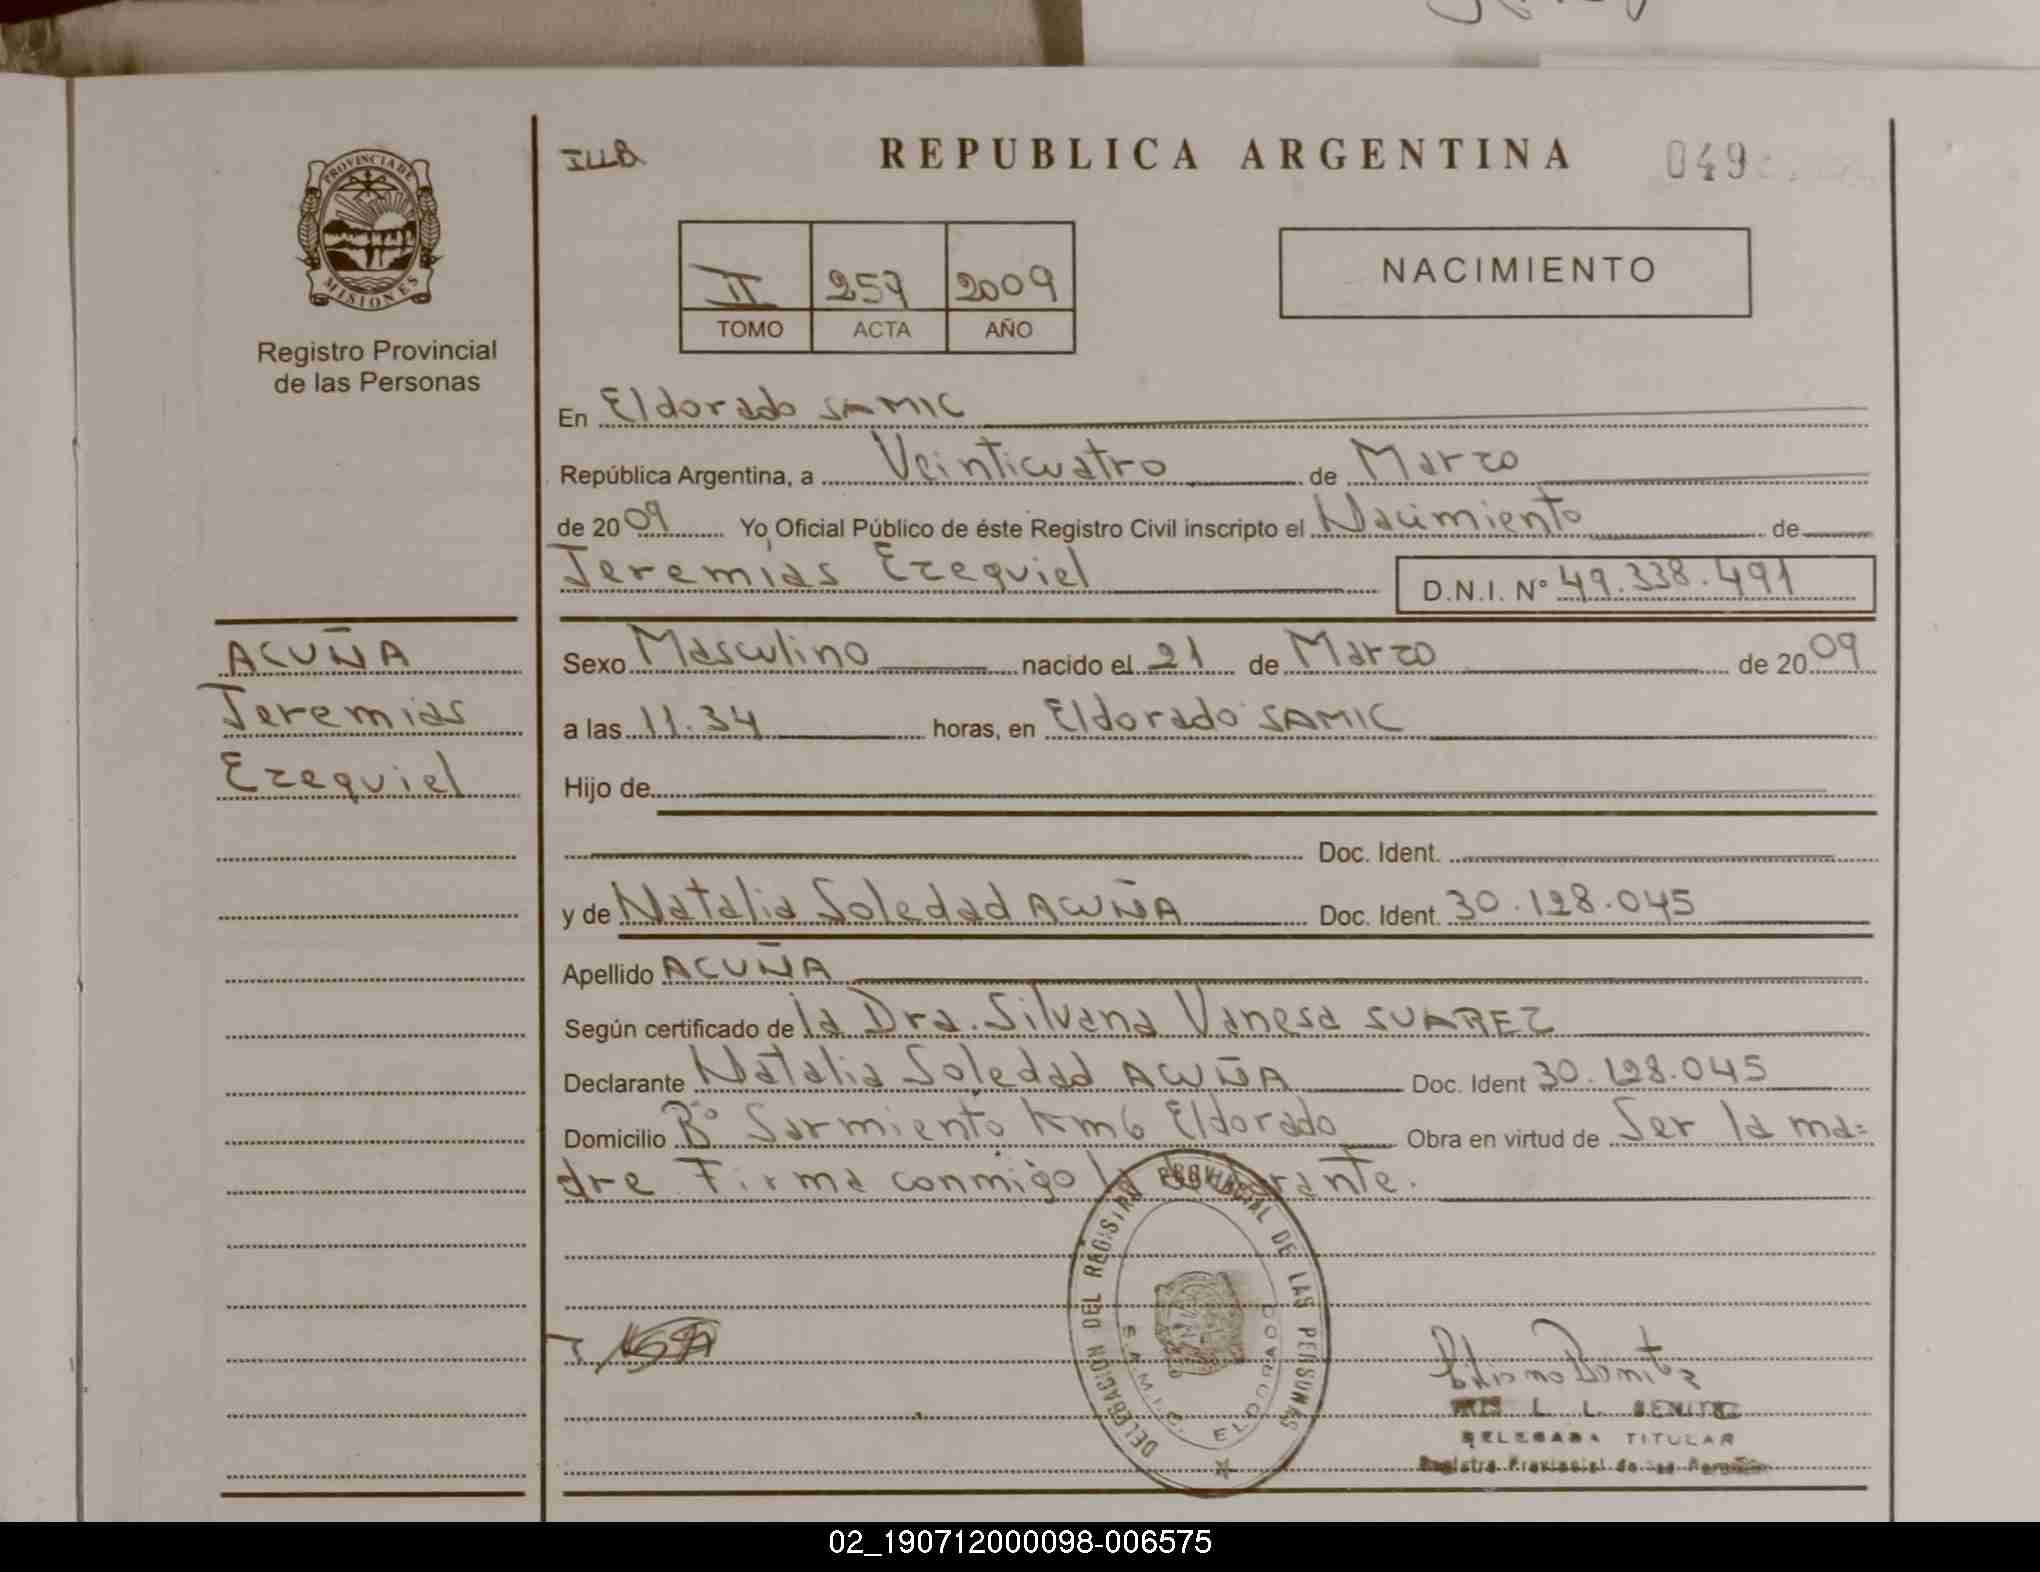 ILLB
REPUBLICA ARGENTINA
049
PROVINCIA DE
MISIONES
Registro Provincial
de las Personas
II 257 2009
TOMO ACTA AÑO
NACIMIENTO
En Eldorado SAMIC
República Argentina, a Veinticuatro de Marzo
de 2009 Yo, Oficial Público de éste Registro Civil inscripto el Nacimiento de
Jeremias Ezequiel D.N.I. Nº 49.338.491
ACUÑA
Jeremias
Ezequiel
Sexo Masculino nacido el 21 de Marzo de 2009
a las 11.34 horas, en Eldorado SAMIC
Hijo de
Doc. Ident.
y de Natalia Soledad ACUÑA Doc. Ident. 30.128.045
Apellido ACUÑA
Según certificado de la Dra. Silvana Vanesa SUAREZ
Declarante Natalia Soledad ACUÑA Doc. Ident 30.128.045
Domicilio Bº Sarmiento Km 6 Eldorado Obra en virtud de Ser la ma=
dre Firma conmigo la declarante.
DELEGACION DEL REGISTRO PROVINCIAL DE LAS PERSONAS
S.A.M.I.C. ELDORADO
L. L. BENITEZ
DELEGADA TITULAR
Registro Provincial de las Personas
02_190712000098-006575